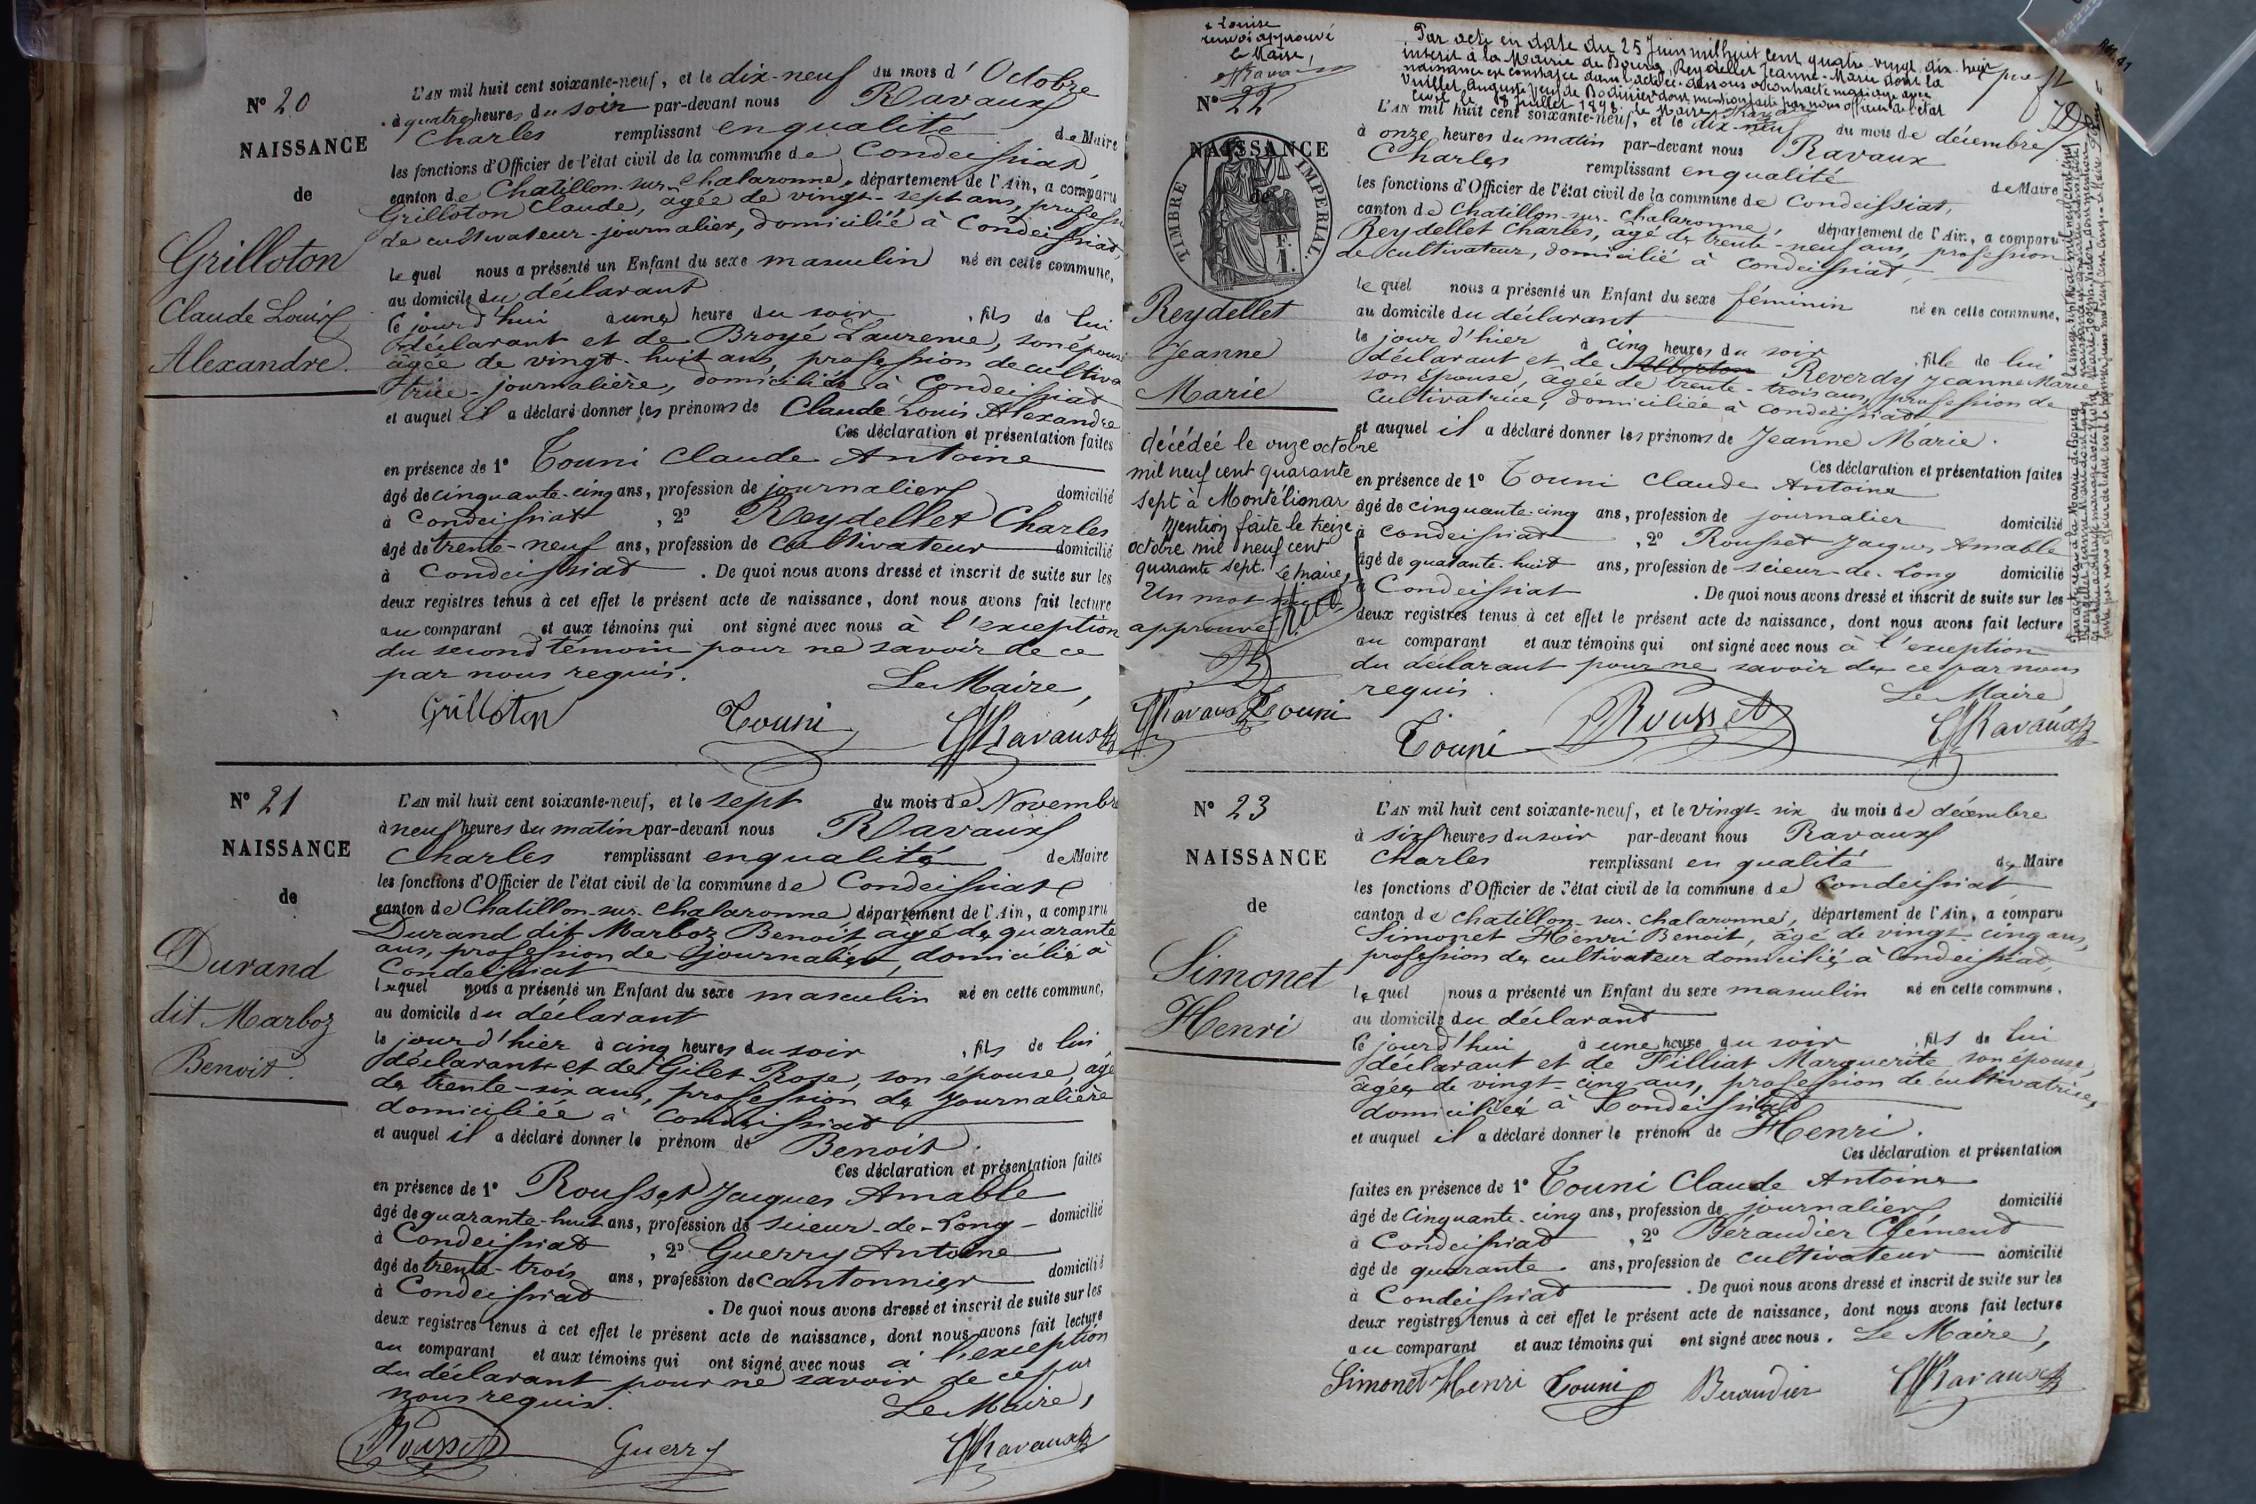 N° 20
NAISSANCE
de
Grilloton
Claude Louis
Alexandre.
L'AN mil huit cent soixante-neuf, et le dix-neuf du mois d'Octobre
à quatre heures du soir par-devant nous Ravaux
Charles remplissant en qualité de Maire
les fonctions d'Officier de l'état civil de la commune de Condeissiat,
canton de Chatillon-sur-Chalaronne, département de l'Ain, a comparu
Grilloton Claude, âgée de vingt-sept ans, profession
de cultivateur-journalier, domicilié à Condeissiat,
lequel nous a présenté un Enfant du sexe masculin né en cette commune,
au domicile du déclarant
le jour d'hui à une heure du soir, fils de lui
déclarant et de Broyé Laurence, son épouse
âgée de vingt-huit ans, profession de cultiva
trice-journalière, domiciliée à Condeissiat
et auquel il a déclaré donner les prénoms de Claude Louis Alexandre
Ces déclaration et présentation faites
en présence de 1° Touni Claude Antoine
âgé de cinquante-cinq ans, profession de journalier domicilié
à Condeissiat, 2° Reydellet Charles
âgé de trente-neuf ans, profession de cultivateur domicilié
à Condeissiat. De quoi nous avons dressé et inscrit de suite sur les
deux registres tenus à cet effet le présent acte de naissance, dont nous avons fait lecture
au comparant et aux témoins qui ont signé avec nous à l'exception
du second témoin pour ne savoir de ce
par nous requis.
Le Maire,
Grilloton Touni Ravaux
N° 21
NAISSANCE
de
Durand
dit Marboz
Benoit.
L'AN mil huit cent soixante-neuf, et le sept du mois de Novembre
à neuf heures du matin par-devant nous Ravaux
Charles remplissant en qualité de Maire
les fonctions d'Officier de l'état civil de la commune de Condeissiat
canton de Chatillon-sur-Chalaronne département de l'Ain, a comparu
Durand dit Marboz Benoit âgé de quarante
ans, profession de journalier, domicilié à
Condeissiat
lequel nous a présenté un Enfant du sexe masculin né en cette commune,
au domicile du déclarant
le jour d'hier à cinq heures du soir, fils de lui
déclarant et de Gilet Rose, son épouse, âgée
de trente-six ans, profession de journalière
domiciliée à Condeissiat
et auquel il a déclaré donner le prénom de Benoit.
Ces déclaration et présentation faites
en présence de 1° Rousset Jacques Amable
âgé de quarante-huit ans, profession de scieur-de-Long domicilié
à Condeissiat, 2° Guerry Antoine
âgé de trente-trois ans, profession de cantonnier domicilié
à Condeissiat. De quoi nous avons dressé et inscrit de suite sur les
deux registres tenus à cet effet le présent acte de naissance, dont nous avons fait lecture
au comparant et aux témoins qui ont signé avec nous à l'exception
du déclarant pour ne savoir de ce par
nous requis.
Le Maire,
Rousset Guerry Ravaux
Louise
renvoi approuvé
le Maire,
Ravaux
Par acte en date du 25 Juin mil huit cent quatre-vingt-dix-huit
inscrit à la Mairie de Bourg, Reydellet Jeanne-Marie dont la
naissance est constatée dans l'acte ci-dessous a contracté mariage avec
N° 22
NAISSANCE
de
TIMBRE IMPERIAL
Reydellet
Jeanne
Marie
décédée le onze octobre
mil neuf cent quarante
sept à Montélimar
Mention faite le treize
octobre mil neuf cent
quarante sept. Le maire,
Un mot
approuvé
Ravaux Touni
L'AN mil huit cent soixante-neuf, et le dix-neuf du mois de décembre
à onze heures du matin par-devant nous Ravaux
Charles remplissant en qualité de Maire
les fonctions d'Officier de l'état civil de la commune de Condeissiat,
canton de Chatillon-sur-Chalaronne, département de l'Ain, a comparu
Reydellet Charles, âgé de trente-neuf ans, profession
de cultivateur, domicilié à Condeissiat
lequel nous a présenté un Enfant du sexe féminin né en cette commune,
au domicile du déclarant
le jour d'hier à cinq heures du soir, fille de lui
déclarant et de Reverdy Jeanne Marie
son épouse, âgée de trente-trois ans, profession de
cultivatrice, domiciliée à Condeissiat
et auquel il a déclaré donner les prénoms de Jeanne Marie.
Ces déclaration et présentation faites
en présence de 1° Touni Claude Antoine
âgé de cinquante-cinq ans, profession de journalier domicilié
à Condeissiat, 2° Rousset Jacques Amable
âgé de quarante-huit ans, profession de scieur-de-Long domicilié
à Condeissiat. De quoi nous avons dressé et inscrit de suite sur les
deux registres tenus à cet effet le présent acte de naissance, dont nous avons fait lecture
au comparant et aux témoins qui ont signé avec nous à l'exception
du déclarant pour ne savoir de ce par nous
requis.
Le Maire
Touni Rousset Ravaux
N° 23
NAISSANCE
de
Simonet
Henri
L'AN mil huit cent soixante-neuf, et le vingt-six du mois de décembre
à six heures du soir par-devant nous Ravaux
Charles remplissant en qualité de Maire
les fonctions d'Officier de l'état civil de la commune de Condeissiat
canton de Chatillon-sur-Chalaronne, département de l'Ain, a comparu
Simonet Henri Benoit, âgé de vingt-cinq ans,
profession de cultivateur domicilié à Condeissiat,
lequel nous a présenté un Enfant du sexe masculin né en cette commune,
au domicile du déclarant
le jour d'hui à une heure du soir, fils de lui
déclarant et de Filliat Marguerite son épouse,
âgée de vingt-cinq ans, profession de cultivatrice,
domiciliée à Condeissiat
et auquel il a déclaré donner le prénom de Henri.
Ces déclaration et présentation
faites en présence de 1° Touni Claude Antoine
âgé de Cinquante-cinq ans, profession de journalier domicilié
à Condeissiat, 2° Béraudier Clément
âgé de quarante ans, profession de cultivateur domicilié
à Condeissiat. De quoi nous avons dressé et inscrit de suite sur les
deux registres tenus à cet effet le présent acte de naissance, dont nous avons fait lecture
au comparant et aux témoins qui ont signé avec nous. Le Maire,
Simonet Henri Touni Beraudier Ravaux